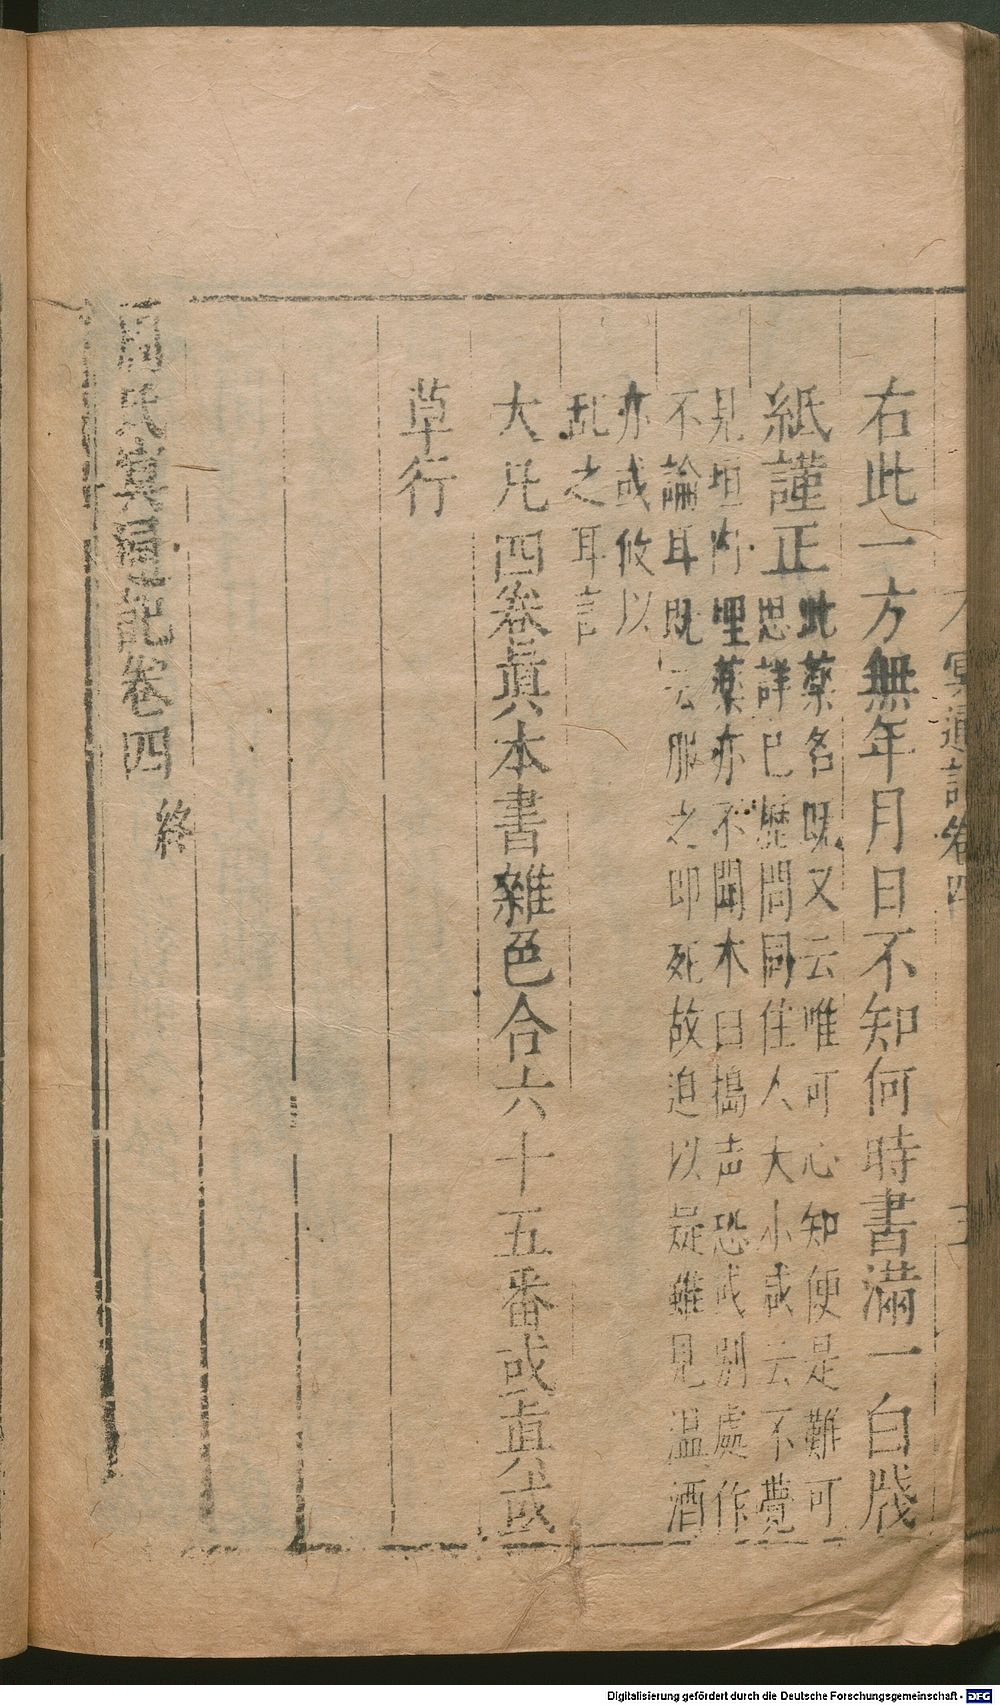 冥通記卷四
右此一方無年月日不知何時書滿一白牋
紙謹正此藥名既又云唯可心知便是難可
思詳已歷問同住人大小咸云不覺
見垣內埋藥亦不聞木臼搗声恐或別處作
不論耳既云服之即死故迫以疑雖見温酒
亦或攸以
乱之耳言
大凡四卷眞本書雜色合六十五番或眞或
草行
周氏冥通記卷四 終
Digitalisierung gefördert durch die Deutsche Forschungsgemeinschaft - DFG